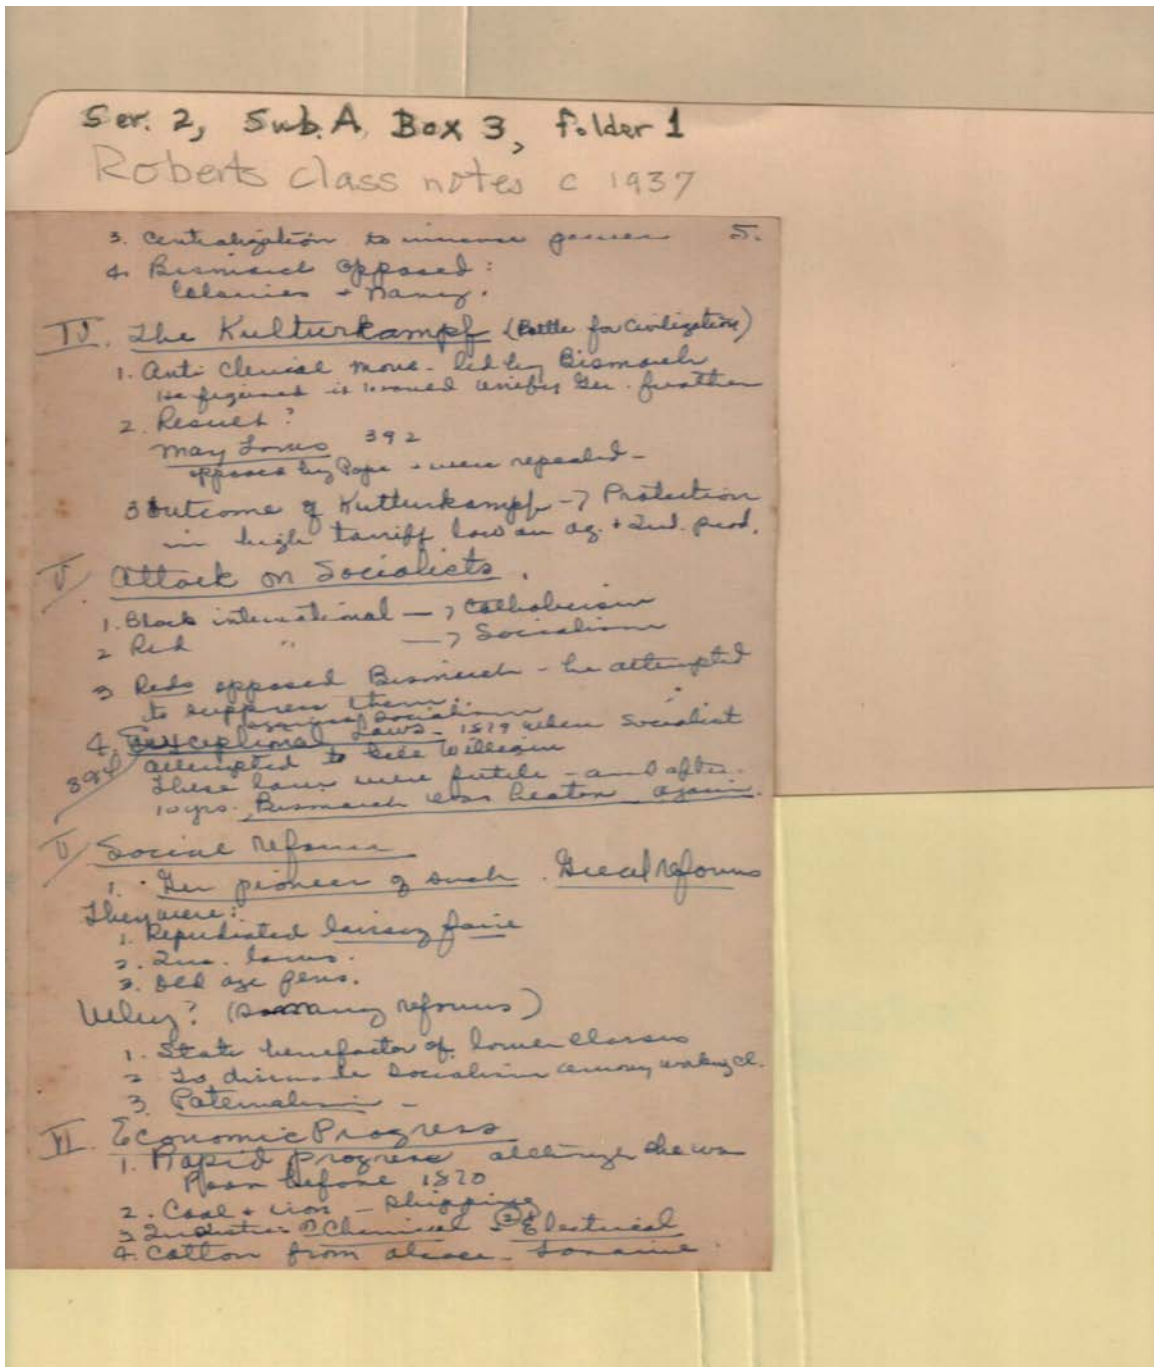 Ser. 2, Sub. A, Box 3, Folder 1
Roberts class notes c 1937
5.
3. Centralization to increase power
4. Bismarck opposed:
Colonies + Navy.
IV. The Kulturkampf (Battle for Civilization)
1. Anti Clerical move. led by Bismarck
He figured it would unify Ger. further
2. Result?
May Laws 392
opposed by Pope + were repealed -
3 Outcome of Kulturkampf -> Protection
in high tarriff law on ag. + Ind. prod.
V Attack on Socialists.
1. Black international —> Catholicism
2 Red " —> Socialism
3 Reds opposed Bismarck - he attempted
to suppress them.
against socialism
4. Exceptional Laws - 1879 when Socialist
attempted to kill William
394
These laws were futile - and after
10 yrs. Bismarck was beaten again.
V Social Reform
1. Ger pioneer of such. Great reforms
They were:
1. Repudiated laissez faire
2. Ins. laws.
3. Old age pens.
Why? (So many reforms)
1. State benefactor of lower classes
2 To dissuade socialism among working cl.
3. Paternalism -
VI. Economic Progress
1. Rapid progress although she was
Poor before 1870
2. Coal + iron - Shipping
3 Industries ① Chemical + ② Electrical
4. Cotton from Alsace-Lorraine.